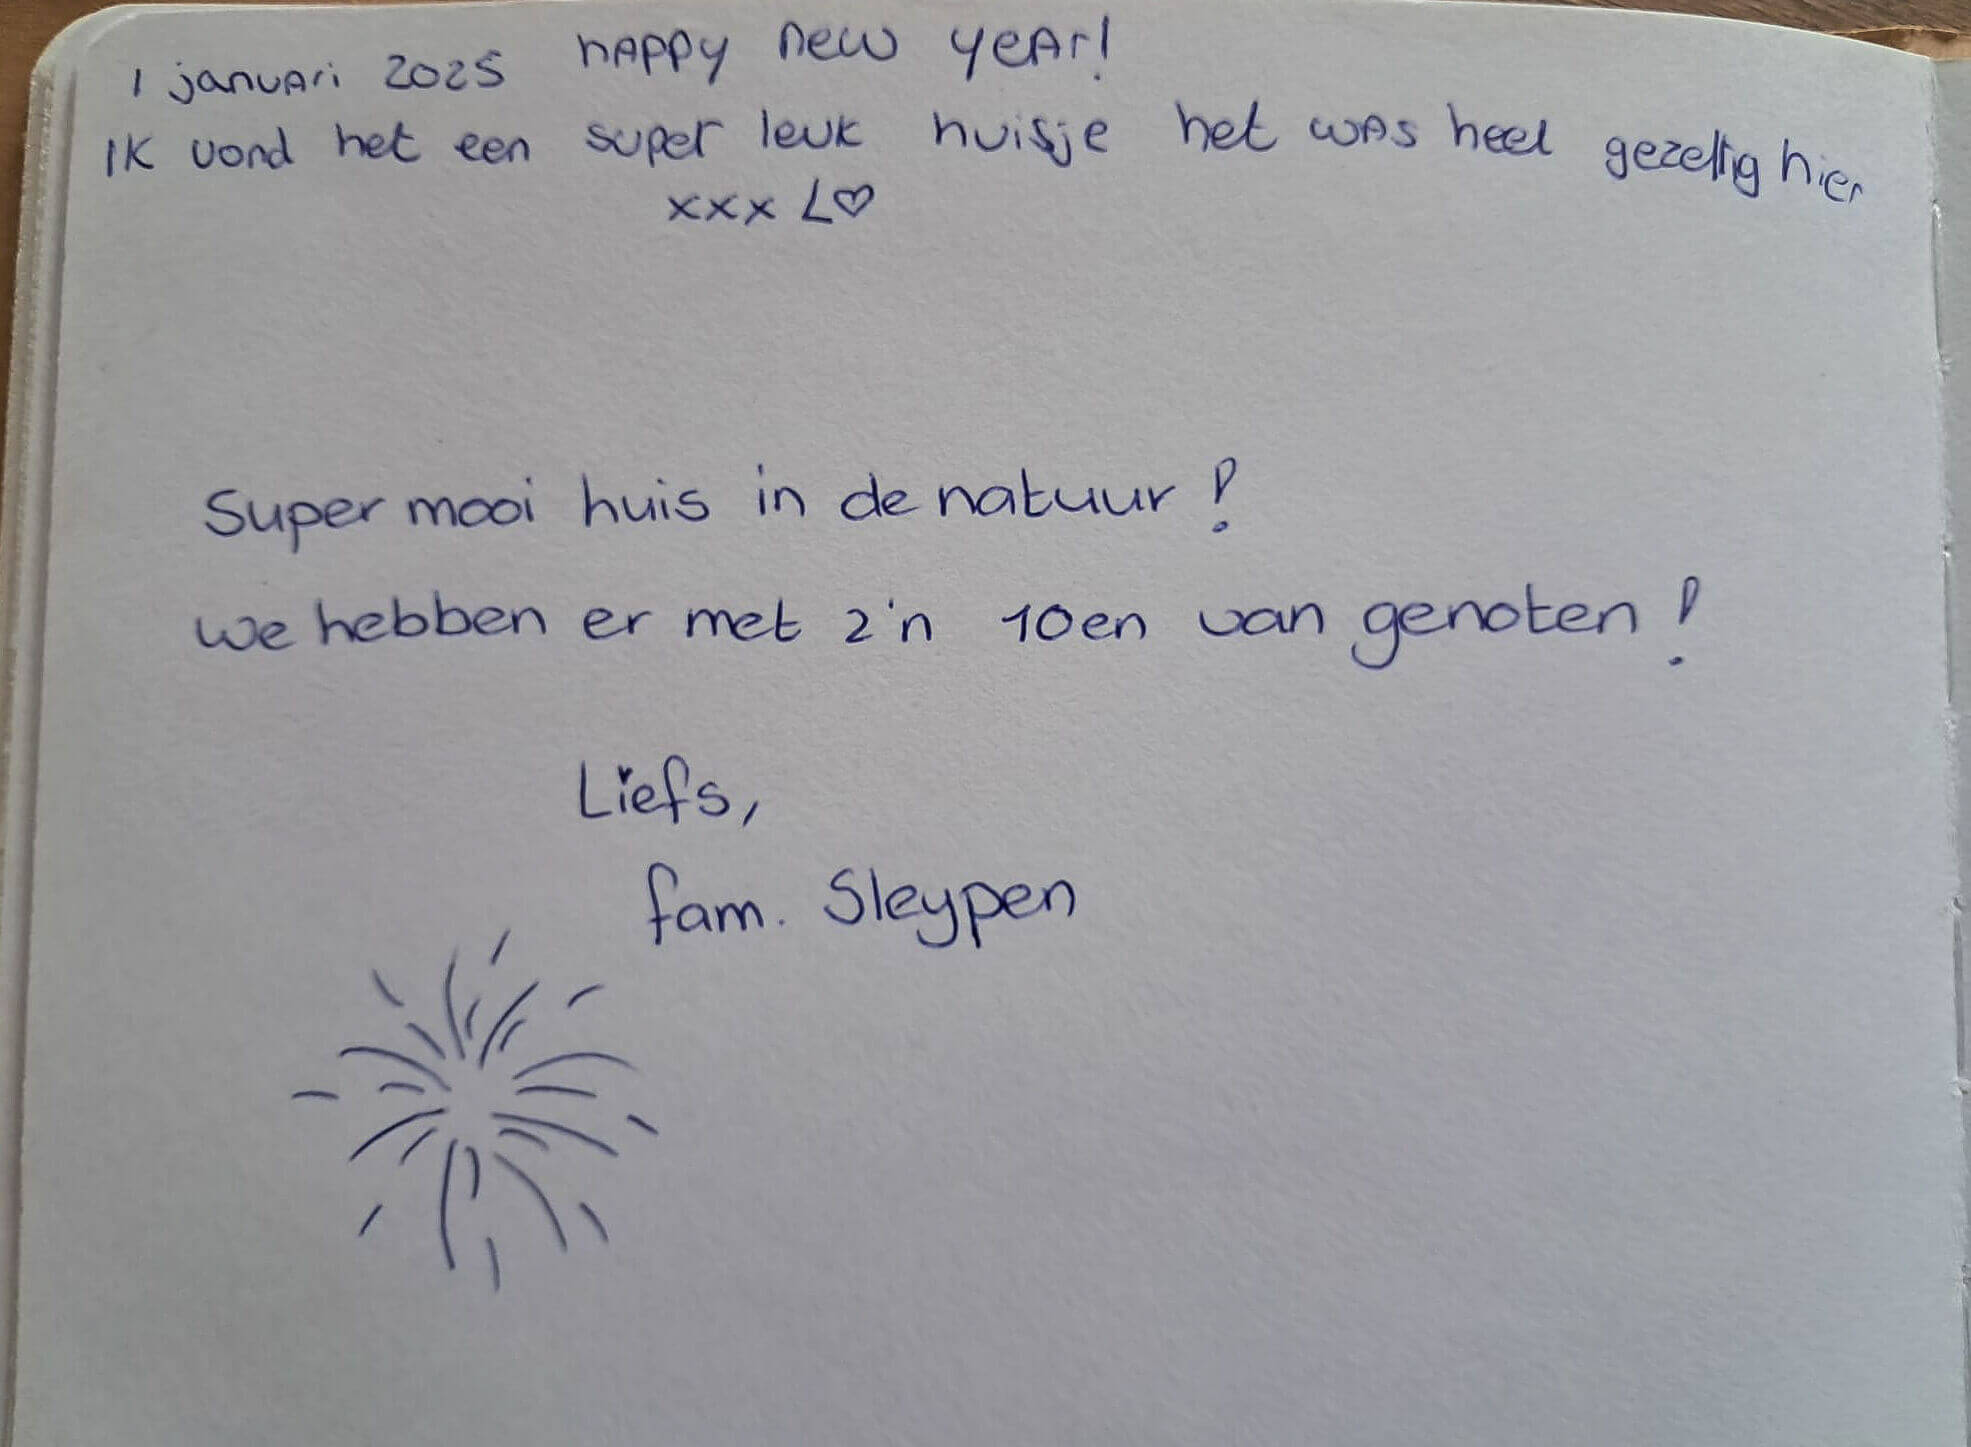 1 januari 2025 happy new year!
Ik vond het een super leuk huisje het was heel gezellig hier
xxx L♡
Super mooi huis in de natuur!
we hebben er met z'n 10en van genoten!
Liefs,
fam. Sleypen